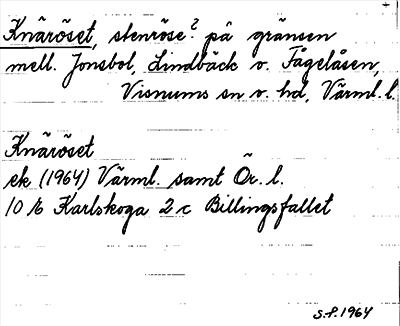 Knäröset, stenröse? på gränsen
mell. Jonsbol, Lindbäck o. Fågelåsen,
Visnums sn o. hd, Värml. l.
Knäröset
ek (1964) Värml. samt Ör. l.
10 F6 Karlskoga 2 c Billingsfallet
S.F. 1964